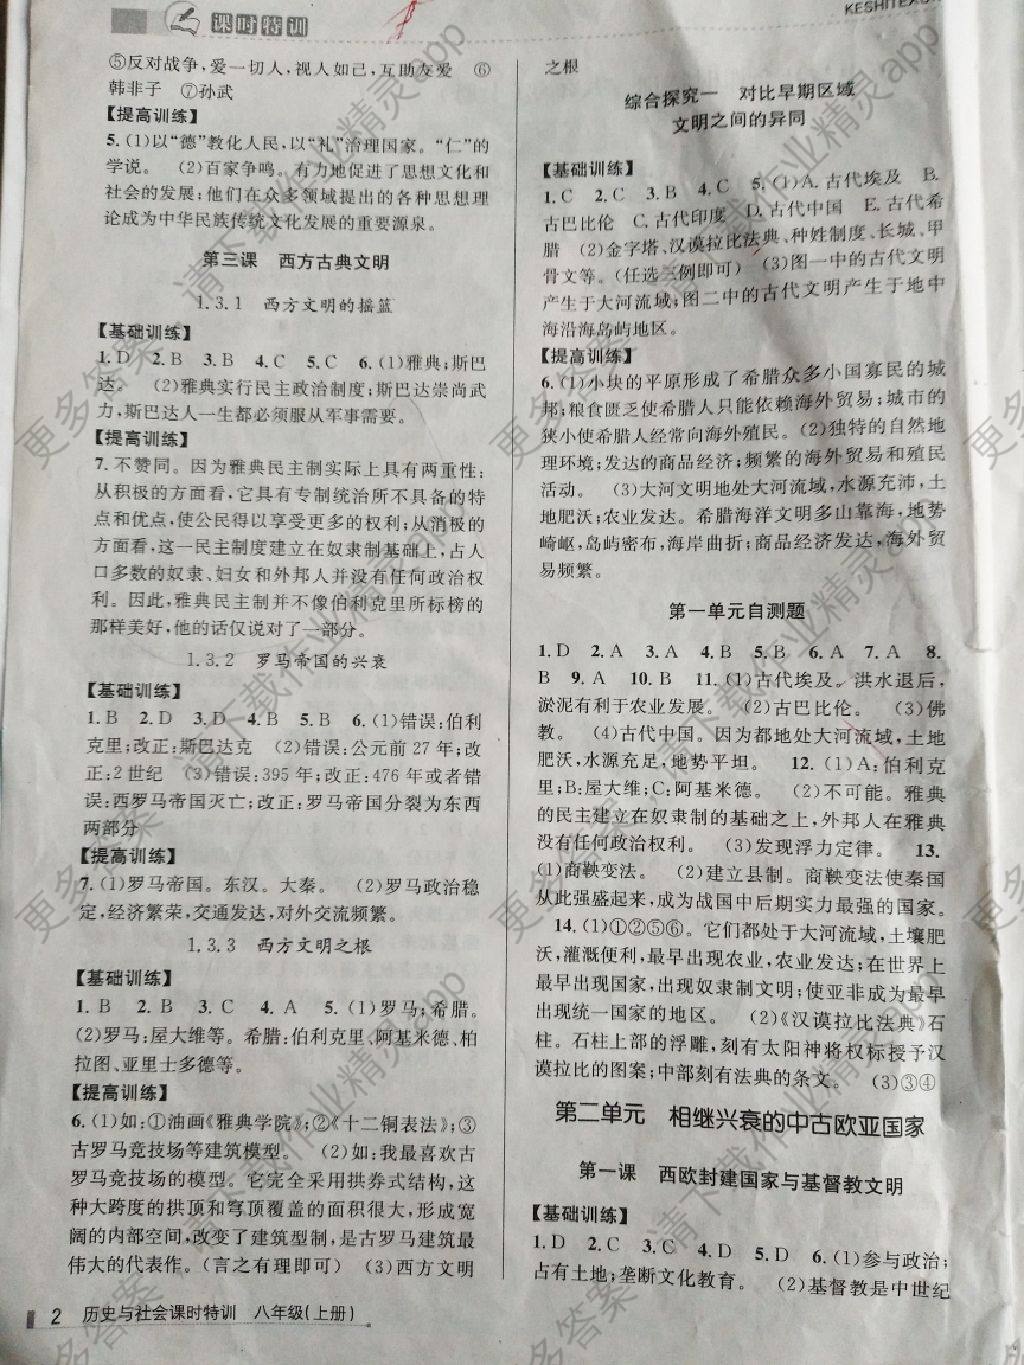 课时特训
⑤反对战争,爱一切人,视人如己,互助友爱 ⑥
韩非子 ⑦孙武
【提高训练】
5.(1)以“德”教化人民,以“礼”治理国家。“仁”的
学说。 (2)百家争鸣。有力地促进了思想文化和
社会的发展;他们在众多领域提出的各种思想理
论成为中华民族传统文化发展的重要源泉。
第三课 西方古典文明
1.3.1 西方文明的摇篮
【基础训练】
1.D 2.B 3.B 4.C 5.C 6.(1)雅典;斯巴
达。 (2)雅典实行民主政治制度;斯巴达崇尚武
力,斯巴达人一生都必须服从军事需要。
【提高训练】
7.不赞同。因为雅典民主制实际上具有两重性:
从积极的方面看,它具有专制统治所不具备的特
点和优点,使公民得以享受更多的权利;从消极的
方面看,这一民主制度建立在奴隶制基础上,占人
口多数的奴隶、妇女和外邦人并没有任何政治权
利。因此,雅典民主制并不像伯利克里所标榜的
那样美好,他的话仅说对了一部分。
1.3.2 罗马帝国的兴衰
【基础训练】
1.B 2.D 3.D 4.B 5.B 6.(1)错误:伯利
克里;改正:斯巴达克 (2)错误:公元前27年;改
正:2世纪 (3)错误:395年;改正:476年或者错
误:西罗马帝国灭亡;改正:罗马帝国分裂为东西
两部分
【提高训练】
7.(1)罗马帝国。东汉。大秦。 (2)罗马政治稳
定,经济繁荣,交通发达,对外交流频繁。
1.3.3 西方文明之根
【基础训练】
1.B 2.B 3.C 4.A 5.(1)罗马;希腊。
(2)罗马:屋大维等。希腊:伯利克里、阿基米德、柏
拉图、亚里士多德等。
【提高训练】
6.(1)如:①油画《雅典学院》;②《十二铜表法》;③
古罗马竞技场等建筑模型。 (2)如:我最喜欢古
罗马竞技场的模型。它完全采用拱券式结构,这
种大跨度的拱顶和穹顶覆盖的面积很大,形成宽
阔的内部空间,改变了建筑型制,是古罗马建筑最
伟大的代表作。(言之有理即可) (3)西方文明
2 历史与社会课时特训 八年级(上册)
之根
综合探究一 对比早期区域
文明之间的异同
【基础训练】
1.C 2.C 3.B 4.C 5.(1)A.古代埃及 B.
古巴比伦 C.古代印度 D.古代中国 E.古代希
腊 (2)金字塔、汉谟拉比法典、种姓制度、长城、甲
骨文等。(任选三例即可) (3)图一中的古代文明
产生于大河流域;图二中的古代文明产生于地中
海沿海岛屿地区。
【提高训练】
6.(1)小块的平原形成了希腊众多小国寡民的城
邦;粮食匮乏使希腊人只能依赖海外贸易;城市的
狭小使希腊人经常向海外殖民。(2)独特的自然地
理环境;发达的商品经济;频繁的海外贸易和殖民
活动。 (3)大河文明地处大河流域,水源充沛,土
地肥沃;农业发达。希腊海洋文明多山靠海,地势
崎岖,岛屿密布,海岸曲折;商品经济发达,海外贸
易频繁。
第一单元自测题
1.D 2.A 3.A 4.B 5.B 6.A 7.A 8.
B 9.A 10.B 11.(1)古代埃及。洪水退后,
淤泥有利于农业发展。 (2)古巴比伦。 (3)佛
教。 (4)古代中国。因为都地处大河流域,土地
肥沃,水源充足,地势平坦。 12.(1)A:伯利克
里;B:屋大维;C:阿基米德。 (2)不可能。雅典
的民主建立在奴隶制的基础之上,外邦人在雅典
没有任何政治权利。 (3)发现浮力定律。 13.
(1)商鞅变法。 (2)建立县制。商鞅变法使秦国
从此强盛起来,成为战国中后期实力最强的国家。
14.(1)①②⑤⑥。它们都处于大河流域,土壤肥
沃,灌溉便利,最早出现农业,农业发达;在世界上
最早出现国家,出现奴隶制文明;使亚非成为最早
出现统一国家的地区。 (2)《汉谟拉比法典》石
柱。石柱上部的浮雕,刻有太阳神将权标授予汉
谟拉比的图案;中部刻有法典的条文。 (3)③④
第二单元 相继兴衰的中古欧亚国家
第一课 西欧封建国家与基督教文明
【基础训练】
1.D 2.C 3.C 4.D 5.D 6.(1)参与政治;
占有土地;垄断文化教育。 (2)基督教是中世纪
更多答案,请下载作业精灵app
更多答案,请下载作业精灵app
更多答案,请下载作业精灵app
更多答案,请下载作业精灵app